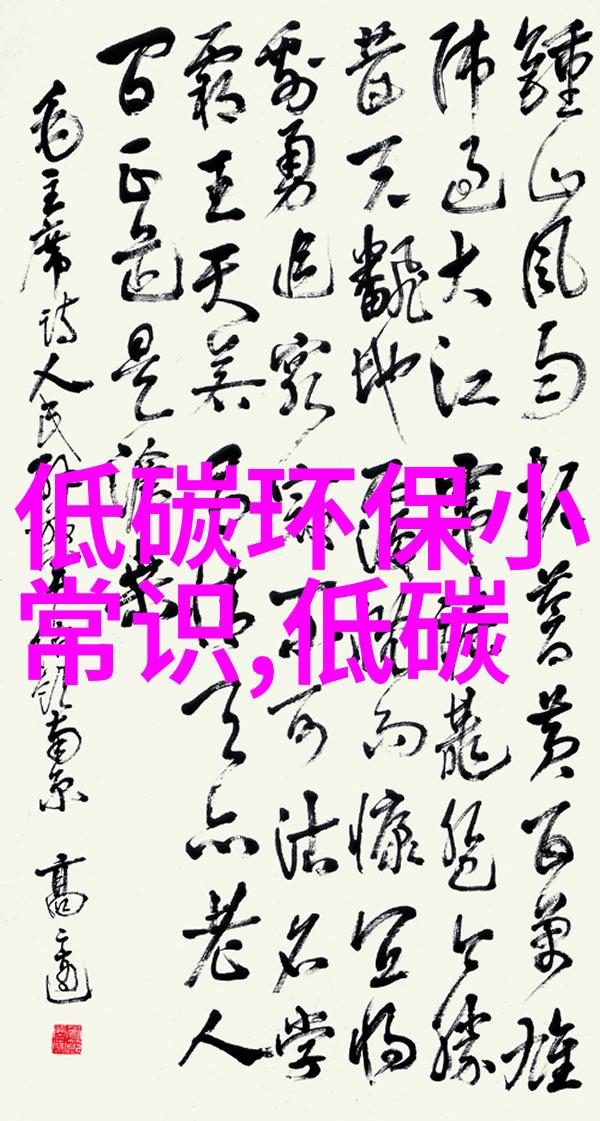 鍾山風雨起蒼黃百萬雄
师過大江虎踞龍盤今勝
昔天飜地覆慨而慷宜將
剩勇追窮寇不可沽名學
霸王天若有情天亦老人
间正道是滄桑
毛主席诗人民解放軍占领南京
高
低碳环保小
常识,低碳